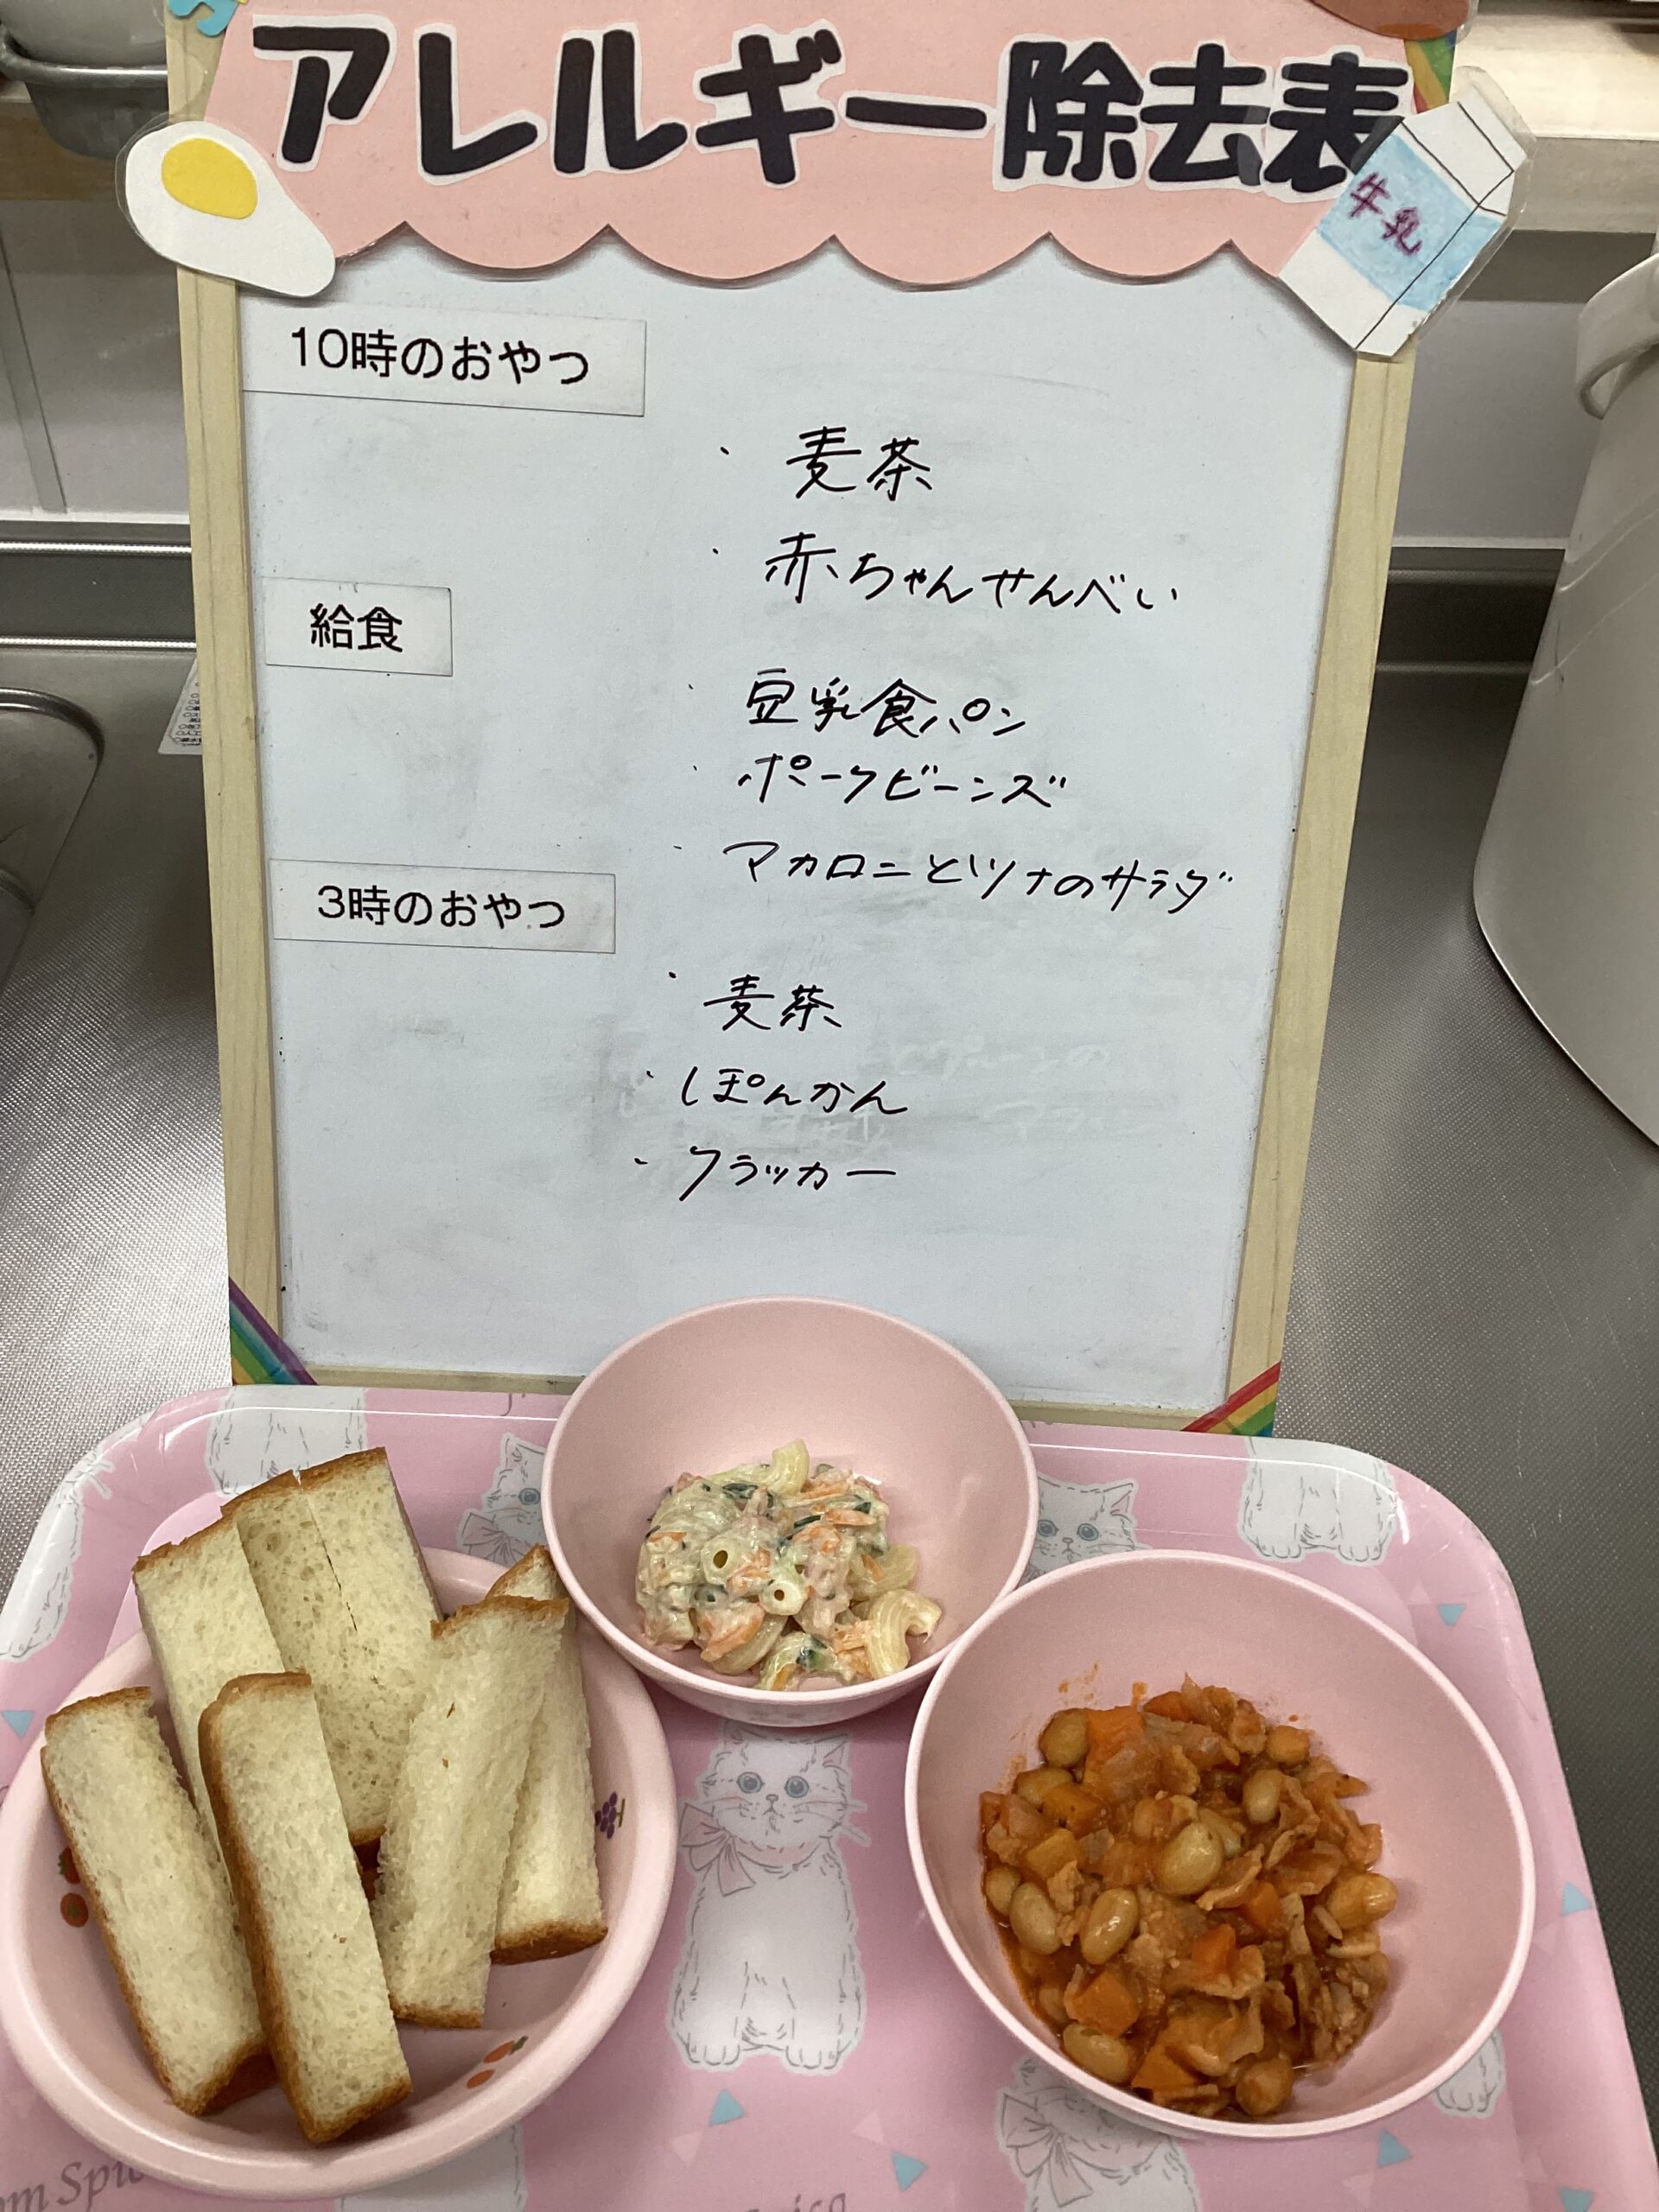 アレルギー除去表
牛乳
10時のおやつ
・麦茶
・赤ちゃんせんべい
給食
・豆乳食パン
・ポークビーンズ
・マカロニとツナのサラダ
3時のおやつ
・麦茶
・ぽんかん
・クラッカー